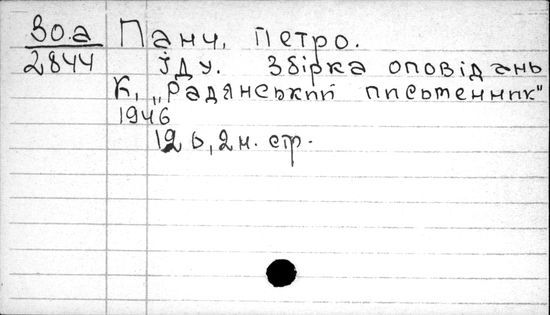 Зо.а Панч, Петро.
2844 Іду. Збірка оповідань
К, „Радянський письменник"
1946
126, 2 н. стр.